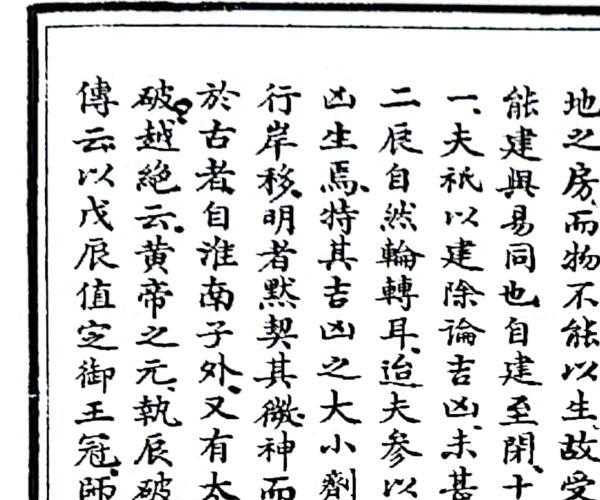 地之房而物不能以生故受
能建與易同也自建至閉十
一、夫祇以建除論吉凶、未甚
二辰自然輪轉耳、迨夫參以
凶生焉、特其吉凶之大小劑
行岸移、明者默契其微神而
於古者、自淮南子外、又有太
破、越絕云、黃帝之元、執辰破
傳云以戊辰值定御王冠、師